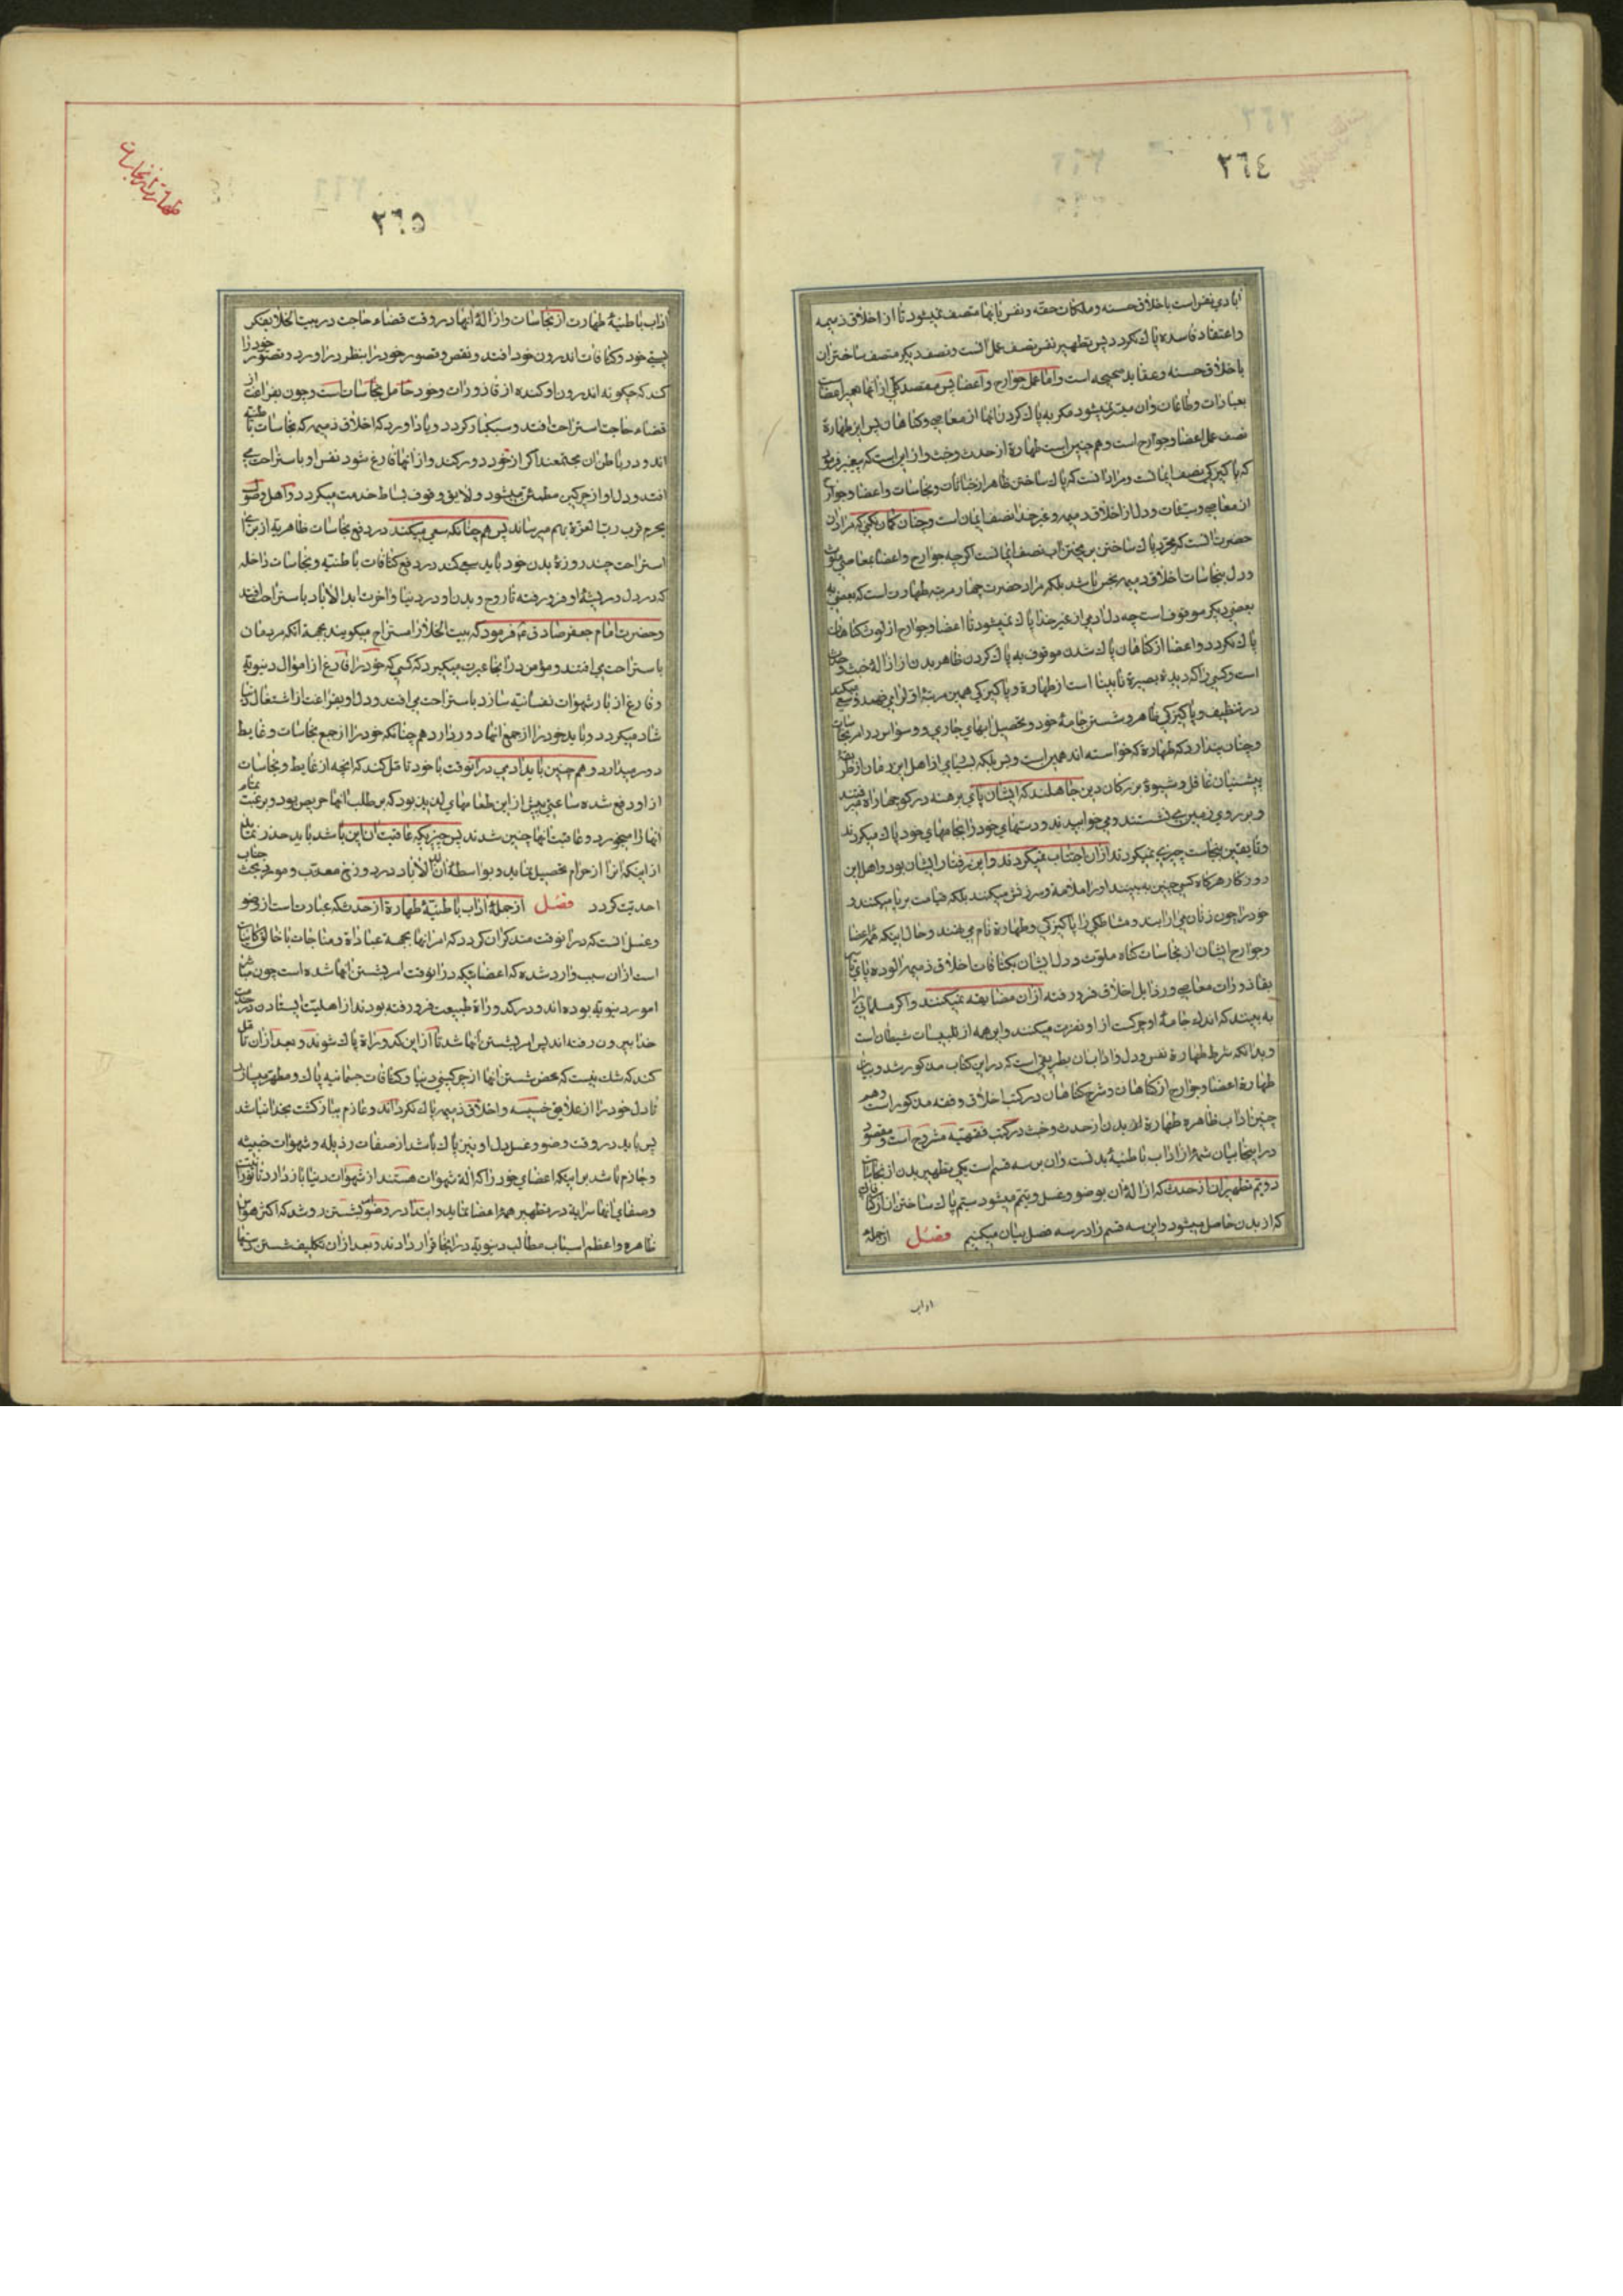 ٢٦٤
ابادی نفس است باخلاق حسنه و ملکات حقه و نفس بانها متصف نمیشود تا از اخلاق ذمیمه
و اعتقاد فاسده پاک نکردد پس تطهیر نفس نصف عمل انست و نصف دیکر متصف ساختن ان
باخلاق حسنه و عقاید صحیحه است و اما عمل جوارح و اعضا پس مقصد کلی از انها تعمیر اعضاست
بعبادات و طاعات و ان میسر نمیشود مکر به پاک کردن انها از معاصی و کناهان پس این طهارة
نصف عمل اعضا و جوارح است و هم چنین است طهارة از حدث و خبث و از این است که پیغمبر فرمود
که پاکیزکی نصف ایمانست و مراد انست که پاک ساختن ظاهر از خباثات و نجاسات و اعضا و جوارح
از معاصی و سیئات و دل از اخلاق ذمیمه و غیر خدا نصف ایمان است و چنان کمان نکنی که مراد ان
حضرت انست که مجرد پاک ساختن بریختن اب نصف ایمانست اکرچه جوارح و اعضا بمعاصی ملوث
و دل بنجاسات اخلاق ذمیمه نجس باشد بلکه مراد حضرت چهار مرتبه طهارت است که بعضی به
بعضی دیکر موقوف است چه دل ادمی از غیر خدا پاک نمیشود تا اعضا و جوارح از لوث کناهان
پاک نکردد و اعضا از کناهان پاک شدن موقوف به پاک کردن ظاهر بدن از ازاله خبث و حدث
است و کسی را که دیده بصیرة نابینا است از طهارة و پاکیزکی همین مرتبه اول را می فهمد و سعی میکند
در تنظیف و پاکیزکی ظاهر و شستن جامه خود و تحصیل ابهای جاری و وسواس در امر نجاسات
و چنان پندارد که طهارة که خواسته اند همین است و بس بلکه بسیاری از اهل این زمان از طریقه
پیشنیان غافل و شیوه بزرکان دین جاهلند که ایشان پای برهنه در کوچها راه میرفتند
و بر روی زمین می نشستند و می خوابیدند و دستهای خود را بجامهای خود پاک میکردند
و تا یقین بنجاست چیزی نمیکردند از ان اجتناب نمیکردند و این رفتار ایشان بود و اهل این
روزکار هرکاه کسی چنین به بینند او را ملامة و سرزنش میکنند بلکه قیامت برپا میکنند و
خود را چون زنان می ارایند و مشاطکی را پاکیزکی و طهارة نام می نهند و حال اینکه همه اعضا
و جوارح ایشان از نجاسات کناه ملوث و دل ایشان بکثافات اخلاق ذمیمه الوده
بقاذورات معاصی و رذایل اخلاق فرو رفته از ان مضایقه نمیکنند و اکر مسلمانی را
به بینند که اندک جامه او چرکست از او نفرت میکنند و این همه از تلبیسات شیطان است
و بدانکه شرط طهارة نفس و دل و اداب ان بطریقی است که در این کتاب مذکور شد و بیان
طهارة اعضا و جوارح از کناهان و شرح کناهان در کتب اخلاق و فقه مذکور است و هم
چنین اداب ظاهره طهارة بدن از حدث و خبث در کتب فقهیه مشروح است و مقصود
در اینجا بیان شمه از اداب باطنیه بدنست و ان بر سه قسم است یکی تطهیر بدن از نجاسات
دویم تطهیر ان از حدث که ازاله ان بوضو و غسل و تیمم میشود سیم پاک ساختن ان از
که از بدن حاصل میشود و این سه قسم را در سه فصل بیان میکنیم فصل از جمله
اداب
طهارت از نجاسات
٢٦٥
اداب باطنیه طهارت از نجاسات و ازاله انها در وقت قضاء حاجت در بیت الخلا بفکر
پستی خود و کثافات اندرون خود افتد و نقص و قصور خود را بنظر در اورد و تصور خود را
کند که چکونه اندرون او کنده از قاذورات و خود حامل نجاسات است و چون بفراغت از
قضاء حاجت استراحت افتد و سبکبار کردد و یاد اورد که اخلاق ذمیمه که نجاسات باطنیه
اند و در باطن ان مجتمعند اکر از خود دور کند و از انها فارغ شود نفس او باستراحت می
افتد و دل او از چرکین مطمئن میشود و لایق وقوف بساط خدمت میکردد و اهل وصول
بحرم قرب رب العزة بهم میرساند پس هم چنانکه سعی میکنند در دفع نجاسات ظاهریه از برای
استراحت چند روزه بدن خود باید سعی کند در دفع کثافات باطنیه و نجاسات داخله
که در دل و ریشه او فرو رفته تا روح و بدن او در دنیا و اخرت ابد الاباد باستراحت افتد
و حضرت امام جعفر صادق ع فرمود که بیت الخلا را استراح میکویند بجهة انکه مردمان
باستراحت می افتند و مؤمن در انجا عبرت میکیرد که کسی که خود را فارغ از اموال دنیویه
و فارغ از بار شهوات نفسانیه سازد باستراحت می افتد و دل او بفراغت از اشتغال
شاد میکردد و باید خود را از جمع انها دور دارد هم چنانکه خود را از جمع نجاسات و غایط
دور میدارد و هم چنین باید ادمی در انوقت با خود تامل کند که انچه از غایط و نجاسات
از او دفع شده ساعتی پیش از این طعامهای لذیذ بود که بر طلب انها حریص بود و برغبت تمام
انها را میخورد و عاقبت انها چنین شدند پس چیزیکه عاقبت ان این باشد باید حذر نماید
از اینکه انرا از حرام تحصیل نماید و بواسطه ان ابد الاباد در دوزخ معذب و جناب
احدیت کردد فصل از جمله اداب باطنیه طهارة از حدث که عبارت است از وضو
و غسل انست که در انوقت متذکر ان کردد که امر انها بجهة عبادة و مناجات با خالق کاینات
است از ان سبب وارد شده که اعضائیکه در انوقت امر بشستن انها شده است چون
امور دنیویه بوده اند و در کدوراة طبیعت فرو رفته بودند از اهلیت ایستادن در خدمت
خدا بیرون رفته اند پس امر بشستن انها شد تا از این کدوراة پاک شوند و بعد از ان تامل
کند که شک نیست که محض شستن انها از چرکینی دنیا و کثافات جسمانیه پاک و مطهر
تا دل خود را از علایق خسیسه و اخلاق ذمیمه پاک نکرداند و عازم بازکشت بخدا نباشد
پس باید در وقت وضو و غسل دل او نیز پاک باشد از صفات رذیله و شهوات خبیثه
و جازم باشد بر اینکه اعضای خود را که اله شهوات هستند از شهوات دنیا باز دارد تا
و صفای انها سرایة در تطهیر همه اعضا نماید و ابتدا در وضو بشستن رو شد که اکثر حواس
ظاهره و اعظم اسباب مطالب دنیویه در انجا قرار دادند و بعد از ان تکلیف شستن دستها